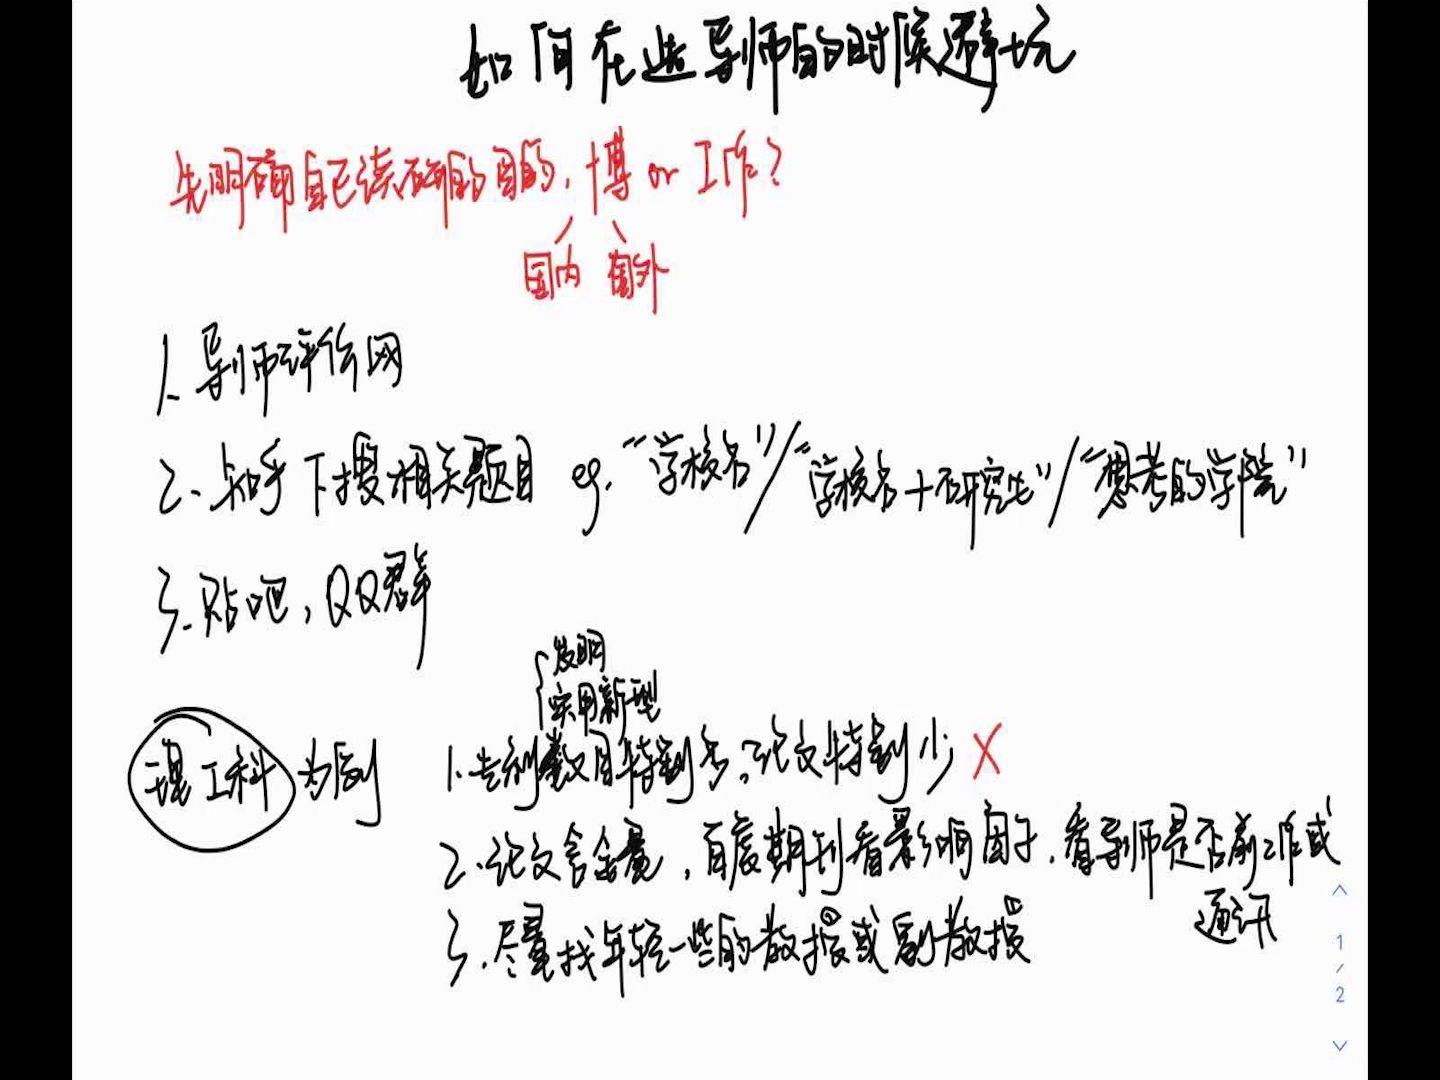 如何在选导师的时候避坑
先明确自己读研的目的，博 or 工作？
国内 国外
1. 导师评价网
2. 知乎下搜相关题目 eg. “学校名”/“学校名+研究生”/“想考的学院”
3. 贴吧，QQ群
发明
实用新型
理工科为例 1. 专利数目特别多，论文特别少 X
2. 论文含金量，百度期刊看影响因子，看导师是否为一作或
通讯
3. 尽量找年轻一些的教授②或副教授①
1/2